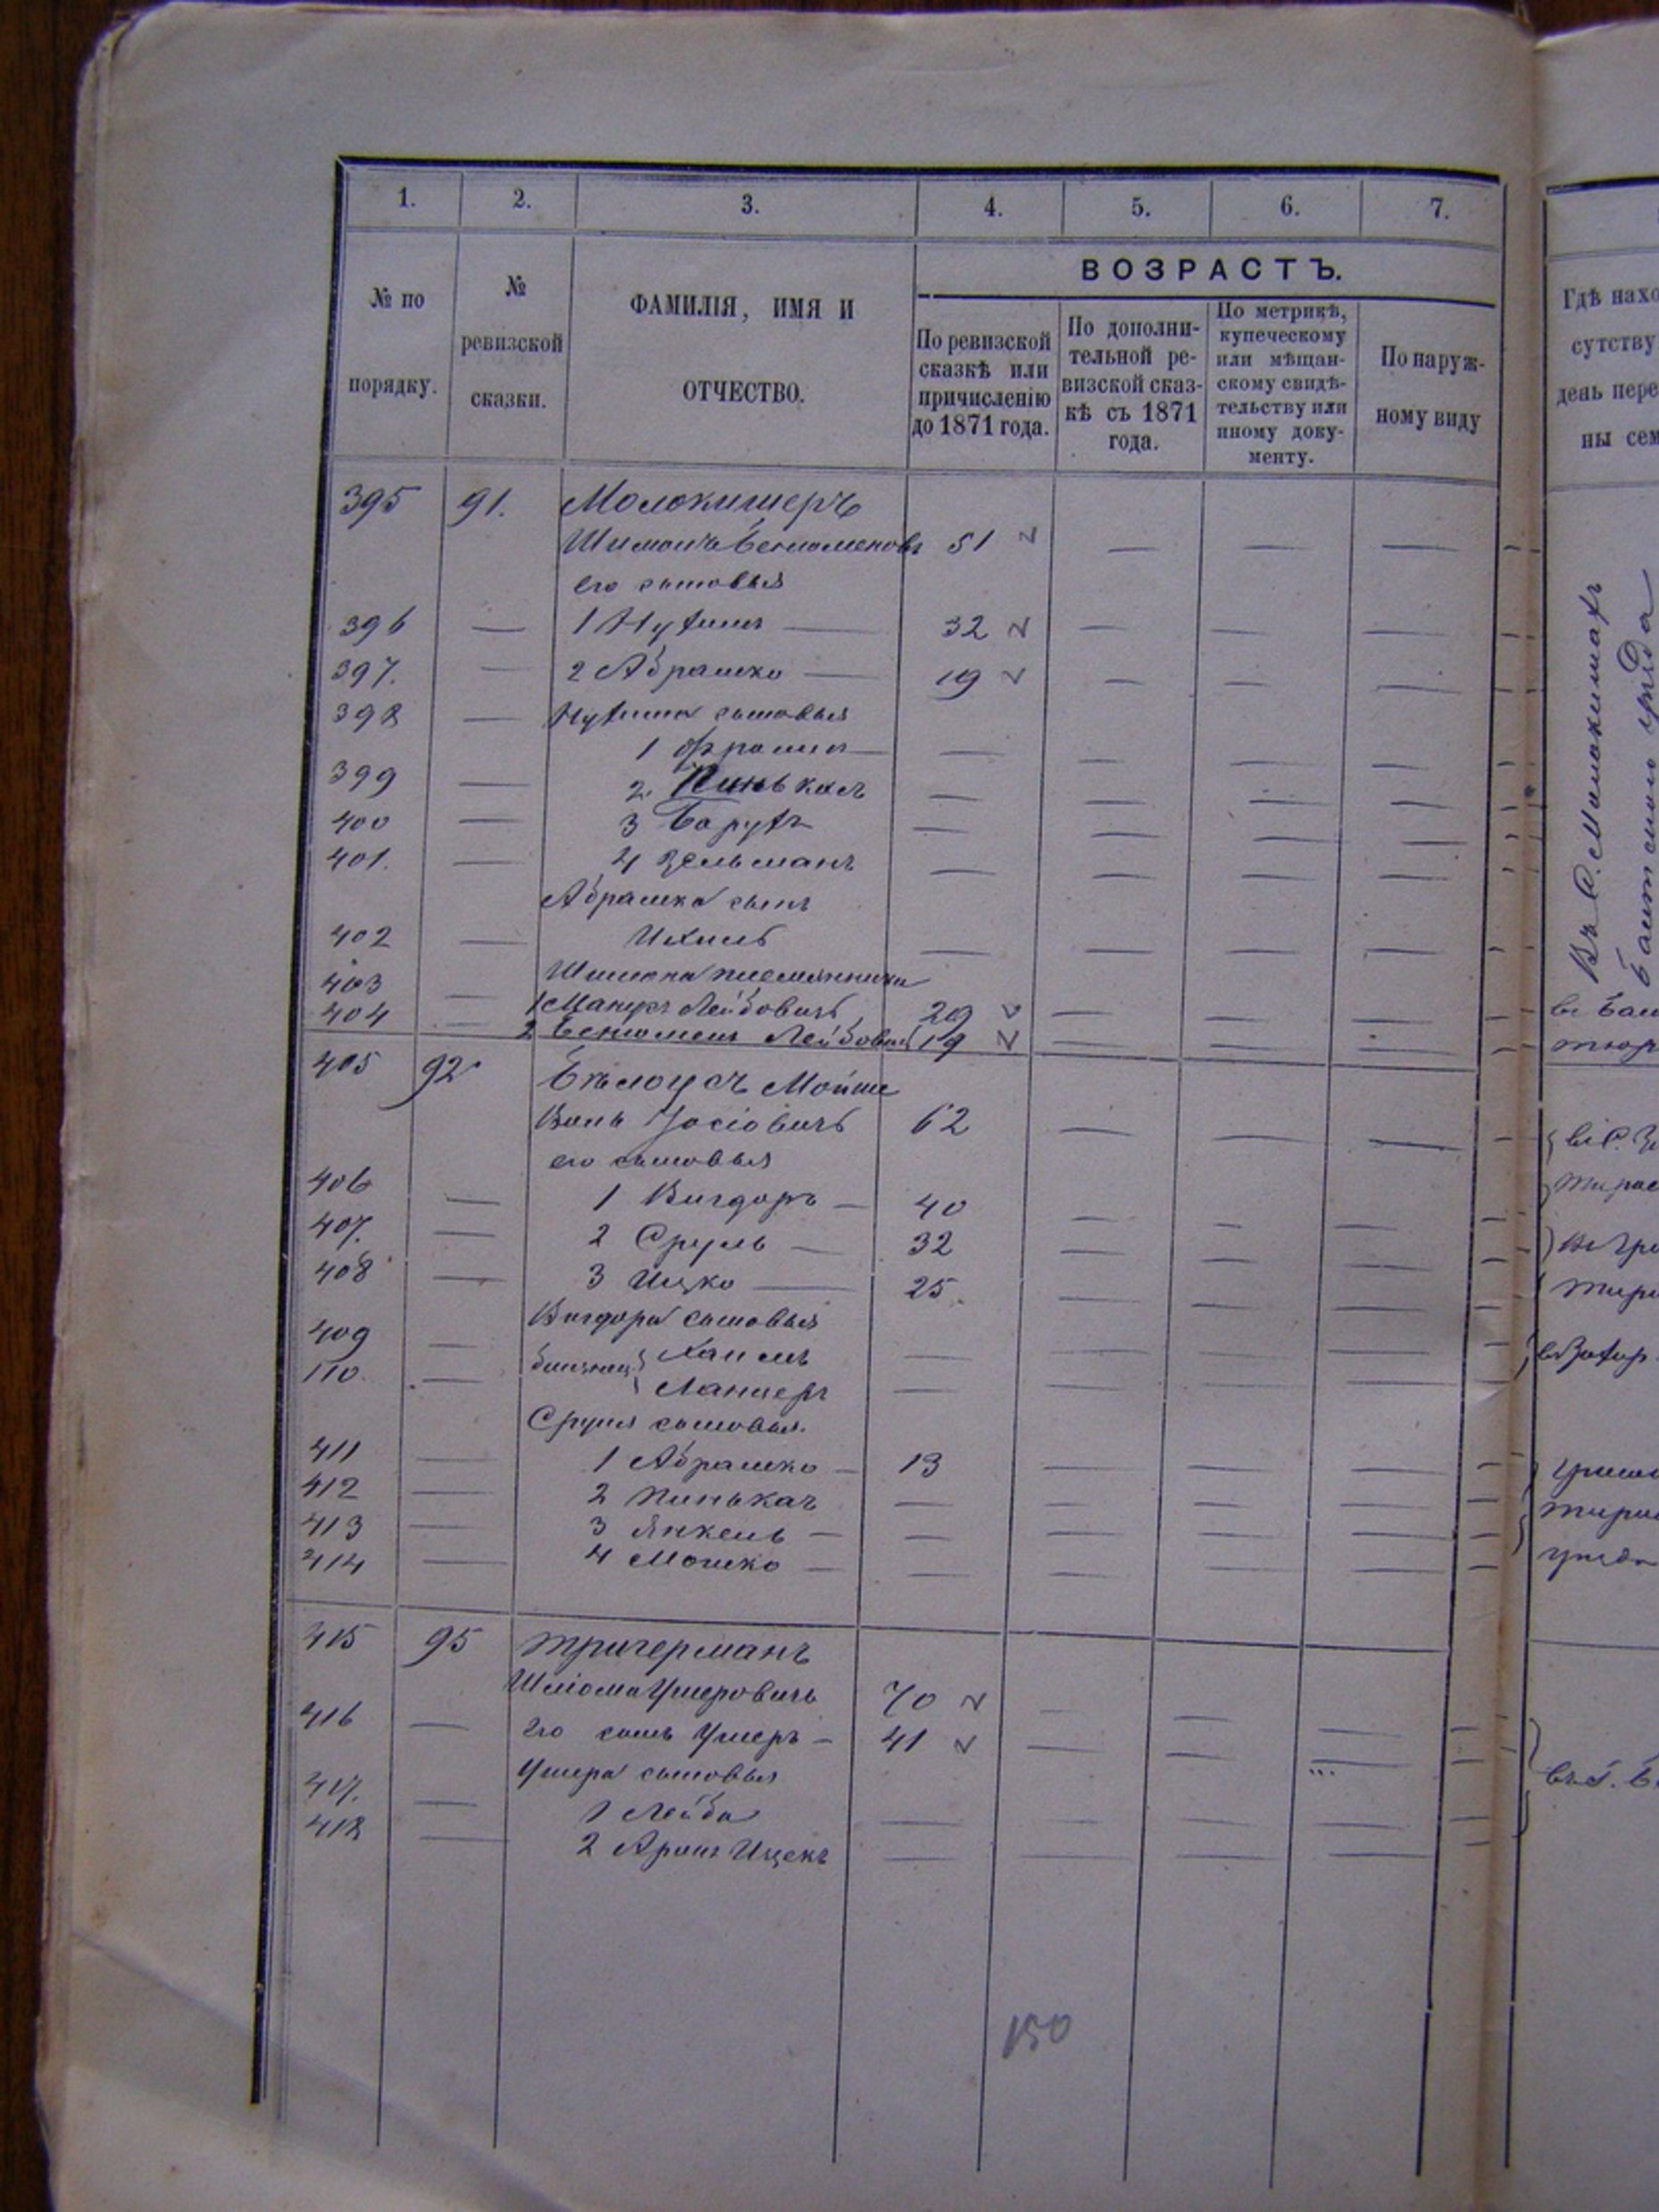 1. 2. 3. 4. 5. 6. 7.
№ по порядку.
№ ревизской сказки.
ФАМИЛІЯ, ИМЯ И ОТЧЕСТВО.
ВОЗРАСТЪ.
По ревизской сказкѣ или причисленію до 1871 года.
По дополни-
тельной ре-
визской сказ-
кѣ съ 1871
года.
По метрикѣ,
купеческому
или мѣщан-
скому свидѣ-
тельству или
иному доку-
менту.
По наруж-
ному виду
Гдѣ нахо
сутству
день пере
ны сем
395 91. Молокишеръ
Шимонъ Бениоменовъ 51
его сыновья
396 — 1 Нухимъ — 32
397. — 2 Абрашко — 19
398 — Нухима сыновья
1 Фроимъ —
399 — 2. Пиньхасъ —
400 — 3 Борухъ —
401. — 4 Зельманъ —
Абрашка сынъ
402 — Ихиль —
403 — Шимона племянники
404 — 1 Манусъ Лейбовичъ 29
2 Бениоменъ Лейбовичъ 19
405 92 Бѣлоусъ Мойше
Волъ Іосіовичъ 62
его сыновья
406 — 1 Вигдоръ — 40
407. — 2 Сруль — 32
408 — 3 Ицко — 25
Вигдора сыновья
409 — близнец. Хаимъ —
110. — Ланцеръ —
Сруля сыновья.
411 — 1 Абрашко — 13
412 — 2 Пинькасъ —
413 — 3 Янкель —
414 — 4 Мошко —
415 95 Тригерманъ
Шліома Ушеровичъ 70
416 — Его сынъ Ушеръ — 41
Ушера сыновья
417. — 1 Лейба —
418 — 2 Аронъ Ицекъ —
150
Въ с. Молокишахъ
Балтскаго уѣзда